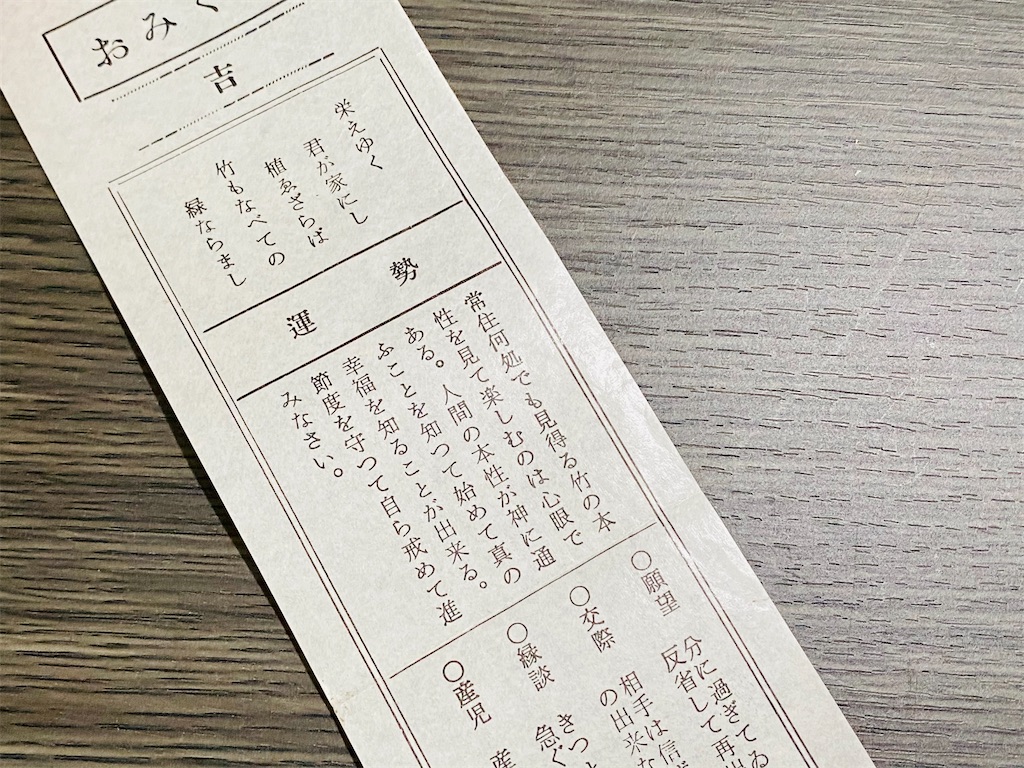 おみく
吉
栄えゆく
君が家にし
植ゑざらば
竹もなべての
緑ならまし
運勢
常住何処でも見得る竹の本
性を見て楽しむのは心眼で
ある。人間の本性が神に通
ふことを知つて始めて真の
幸福を知ることが出来る。
節度を守つて自ら戒めて進
みなさい。
○願望 分に過ぎてゐ
反省して再出
○交際 相手は信
の出来な
○縁談 きつ
急ぐ
○産児 産